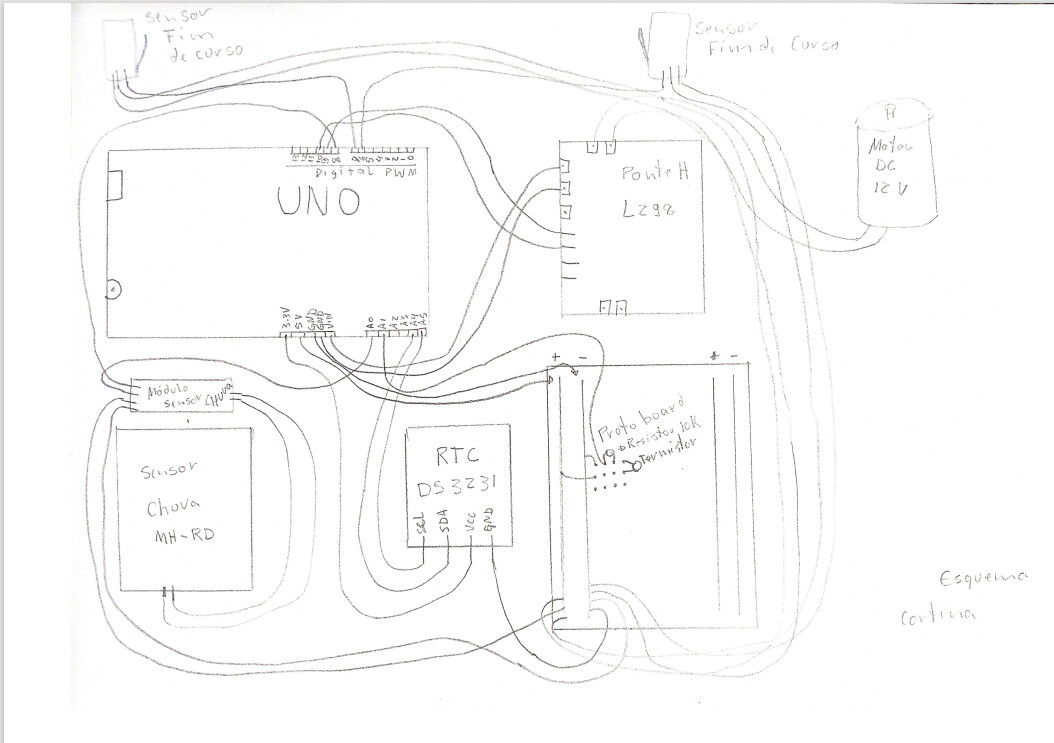 sensor
Fim
de curso
sensor
Fim de Curso
Motor
DC
12 V
Digital PWM
UNO
Ponte H
L298
3.3V
5V
GND
GND
Vin
A0
A1
A2
A3
A4
A5
+ -
+ -
Módulo
sensor CHUVA
Proto board
Resistor 10K
Termistor
RTC
DS3231
SCL
SDA
VCC
GND
Sensor
Chuva
MH-RD
Esquema
Cortina